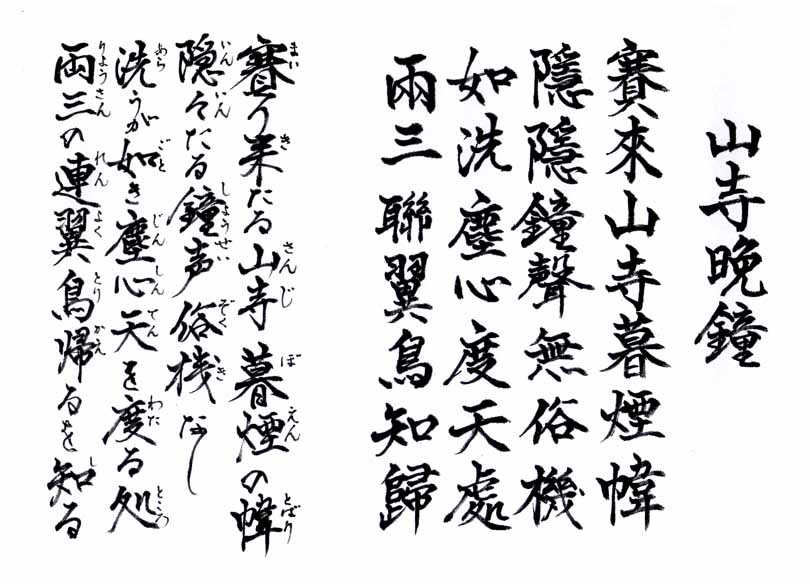 山寺晩鐘
賽來山寺暮煙幃
隱隱鐘聲無俗機
如洗塵心度天處
兩三聯翼鳥知歸
賽り来たる山寺暮煙の幃
まい き さんじ ぼ えん とばり
隠々たる鐘声俗機なし
いんいん しょうせい ぞくき
洗うが如き塵心天を度る処
あら ごと じんしんてん わた ところ
両三の連翼鳥帰るを知る
りょうさん れんよくとりかえ し